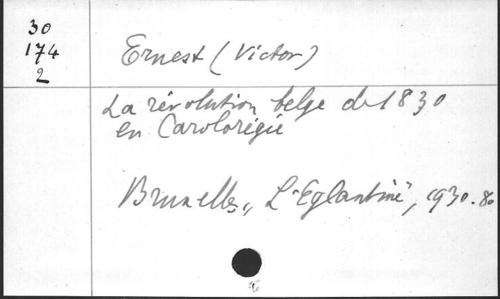 30
174
2
Ernest (Victor)
La révolution belge de 1830
en Carolorégie
Bruxelles, "L'Eglantine", 1930. 8o